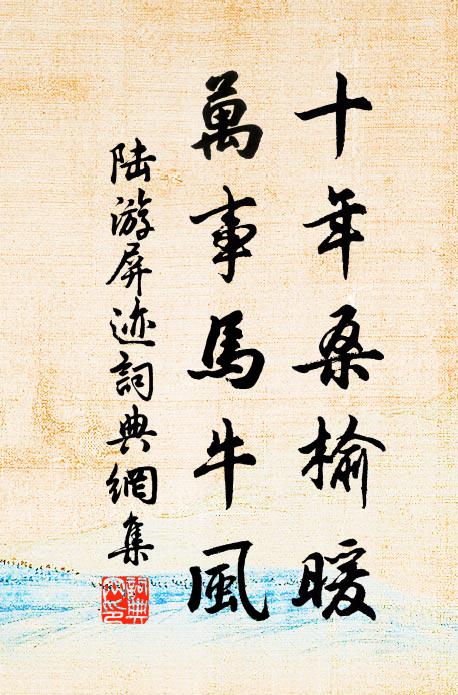 十年桑榆暖
萬事馬牛風
陆游屏迹詞典網集